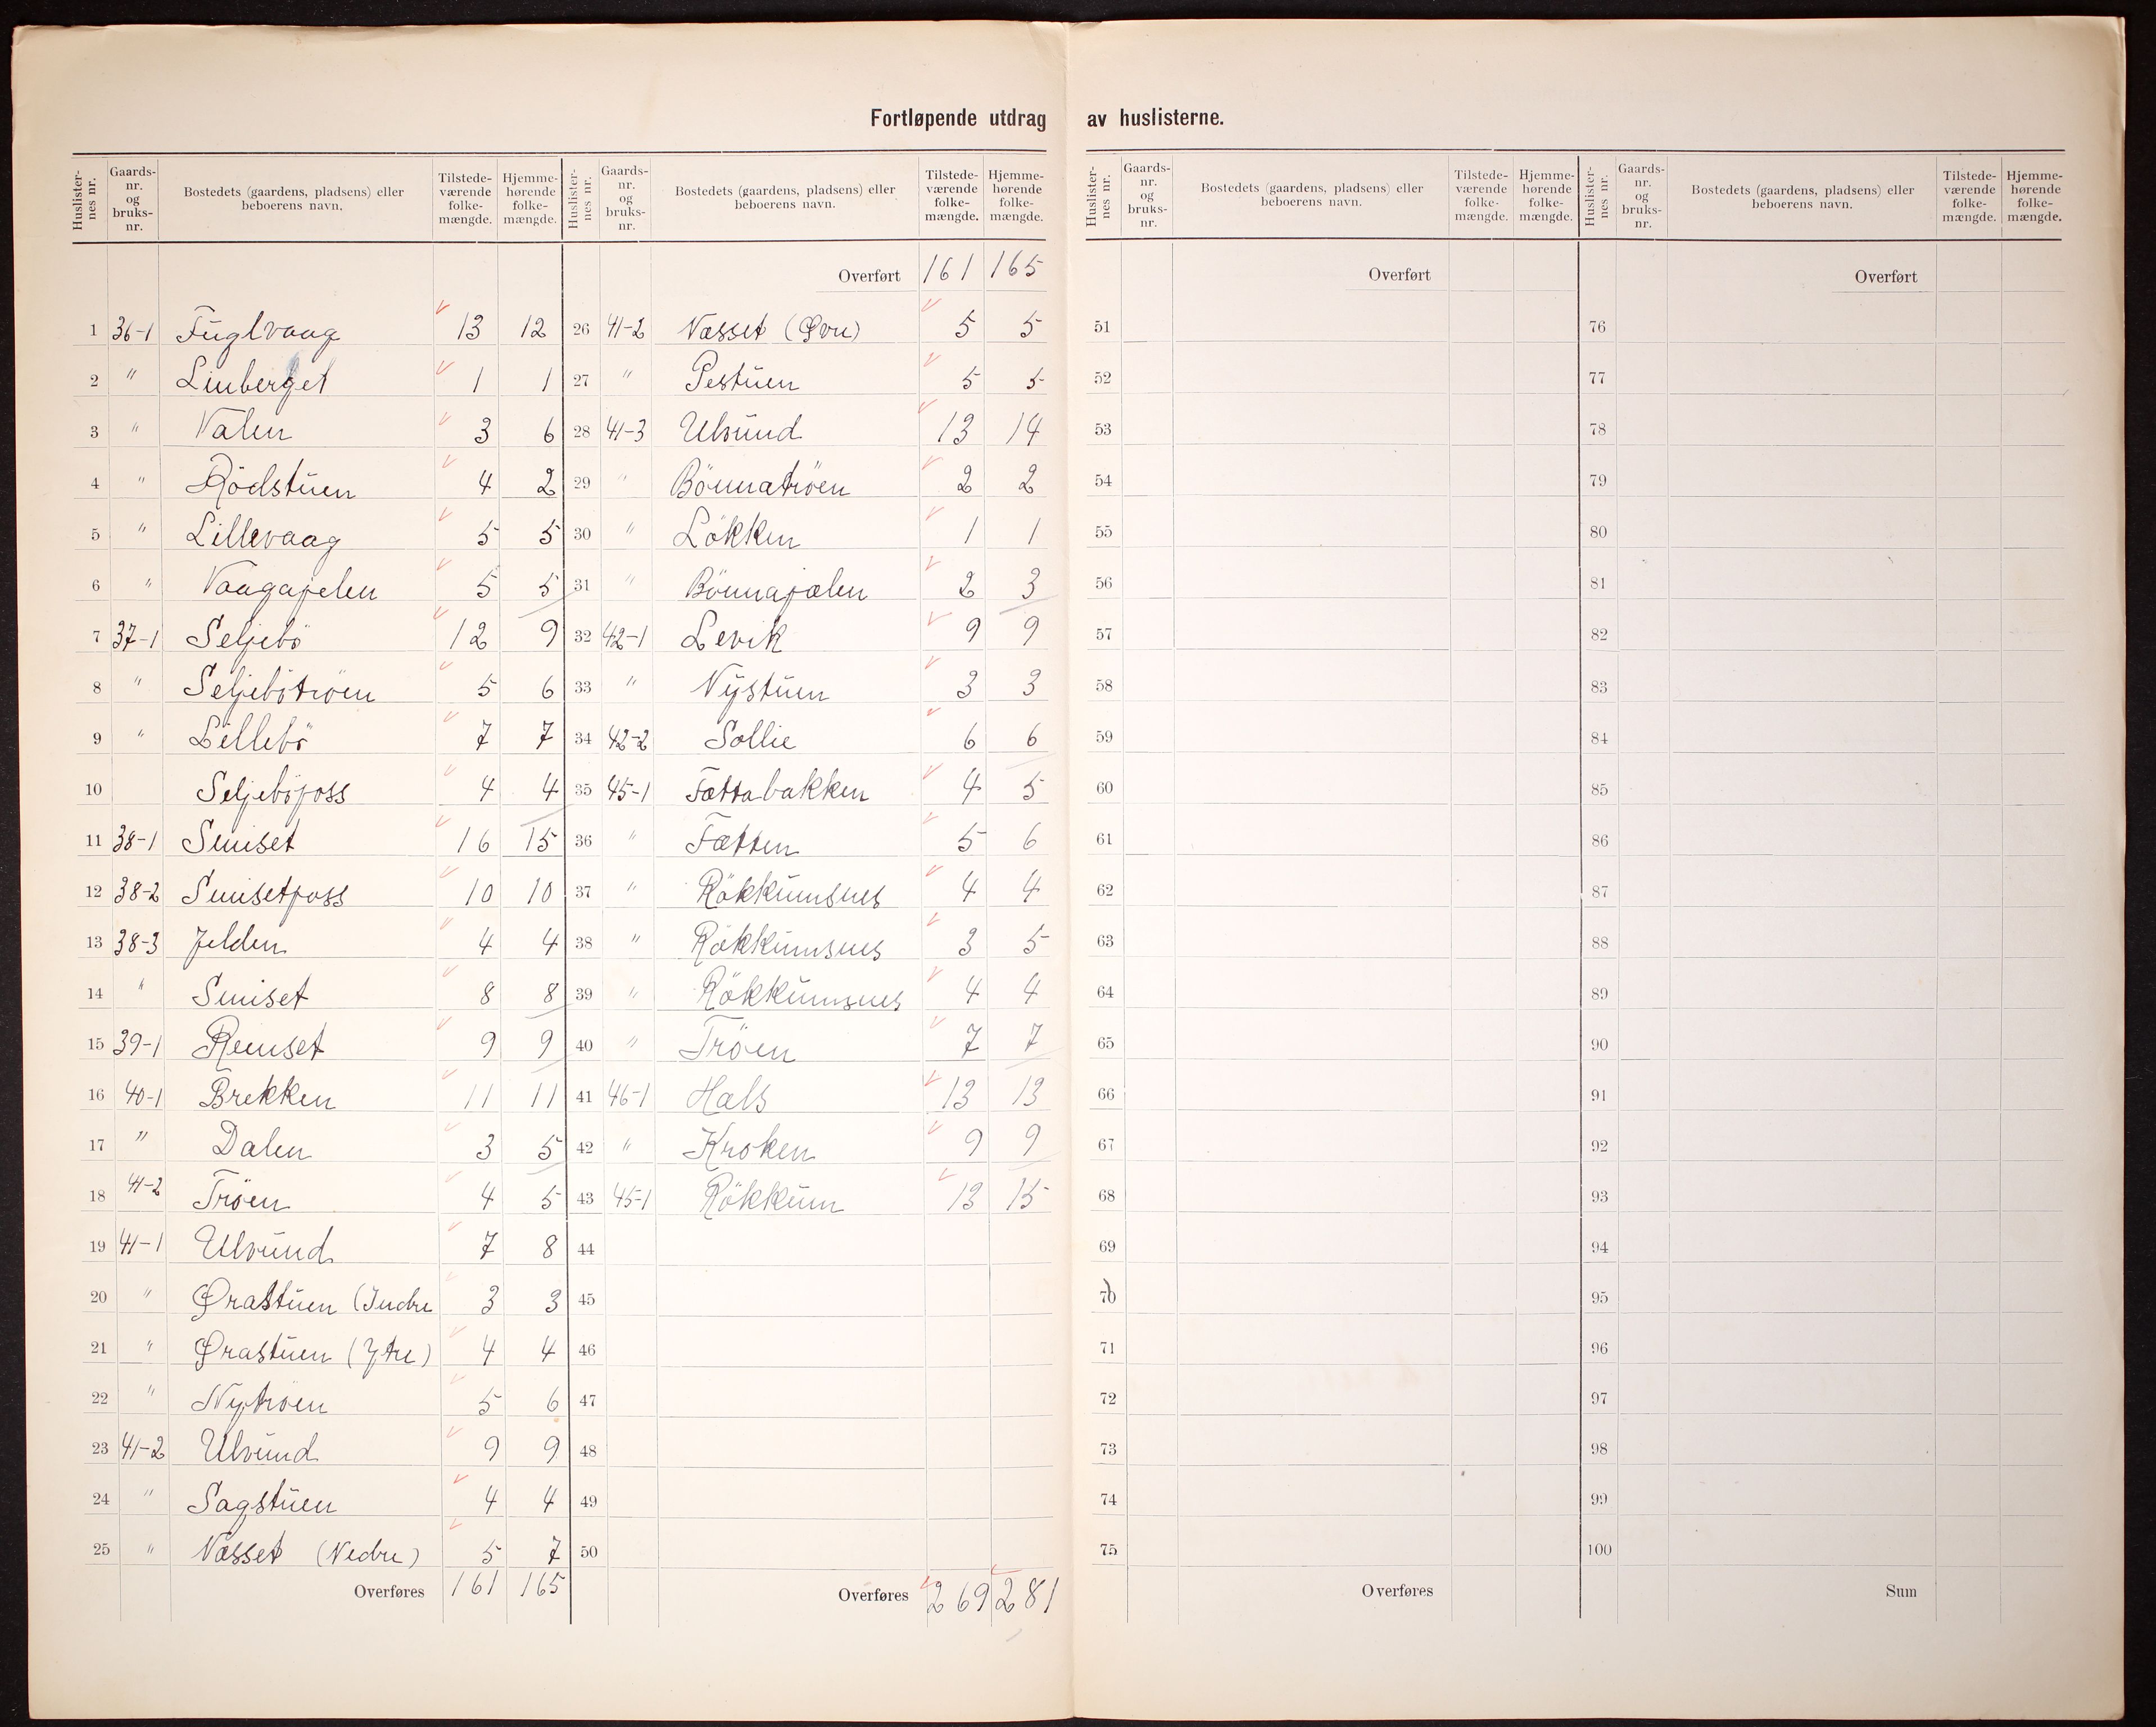 Fortløpende utdrag av huslisterne.
Huslister-nes nr. Gaards-nr. og bruks-nr. Bostedets (gaardens, pladsens) eller beboerens navn. Tilstede-værende folke-mængde. Hjemme-hørende folke-mængde.
1 36-1 Fuglvaag 13 12
2 " Linberget 1 1
3 " Valen 3 6
4 " Rödstuen 4 2
5 " Lillevaag 5 5
6 " Vaagajelen 5 5
7 37-1 Seljebö 12 9
8 " Seljebötröen 5 6
9 " Lillebö 7 7
10 Seljeböfoss 4 4
11 38-1 Smiset 16 15
12 38-2 Smisetfoss 10 10
13 38-3 Jelden 4 4
14 " Smiset 8 8
15 39-1 Remset 9 9
16 40-1 Brekken 11 11
17 " Dalen 3 5
18 41-2 Tröen 4 5
19 41-1 Ulvund 7 8
20 " Ørastuen (Indre 3 3
21 " Ørastuen (Ytre) 4 4
22 " Nytröen 5 6
23 41-2 Ulvund 9 9
24 " Sagstuen 4 4
25 " Næsset (Nedre) 5 7
Overføres 161 165
Huslister-nes nr. Gaards-nr. og bruks-nr. Bostedets (gaardens, pladsens) eller beboerens navn. Tilstede-værende folke-mængde. Hjemme-hørende folke-mængde.
Overført 161 165
26 41-2 Næsset (Øvre) 5 5
27 " Pestuen 5 5
28 41-3 Ulvund 13 14
29 " Bönnatröen 2 2
30 " Lökken 1 1
31 " Bönnajælen 2 3
32 42-1 Levik 9 9
33 " Nystuen 3 3
34 42-2 Sollie 6 6
35 45-1 Fættabakken 4 5
36 " Fætten 5 6
37 " Rökkumsnes 4 4
38 " Rökkumsnes 3 5
39 " Rökkumsnes 4 4
40 " Tröen 7 7
41 46-1 Hals 13 13
42 " Kroken 9 9
43 45-1 Rökkum 13 15
44
45
46
47
48
49
50
Overføres 269 281
Huslister-nes nr. Gaards-nr. og bruks-nr. Bostedets (gaardens, pladsens) eller beboerens navn. Tilstede-værende folke-mængde. Hjemme-hørende folke-mængde.
Overført
51
52
53
54
55
56
57
58
59
60
61
62
63
64
65
66
67
68
69
70
71
72
73
74
75
Overføres
Huslister-nes nr. Gaards-nr. og bruks-nr. Bostedets (gaardens, pladsens) eller beboerens navn. Tilstede-værende folke-mængde. Hjemme-hørende folke-mængde.
Overført
76
77
78
79
80
81
82
83
84
85
86
87
88
89
90
91
92
93
94
95
96
97
98
99
100
Sum